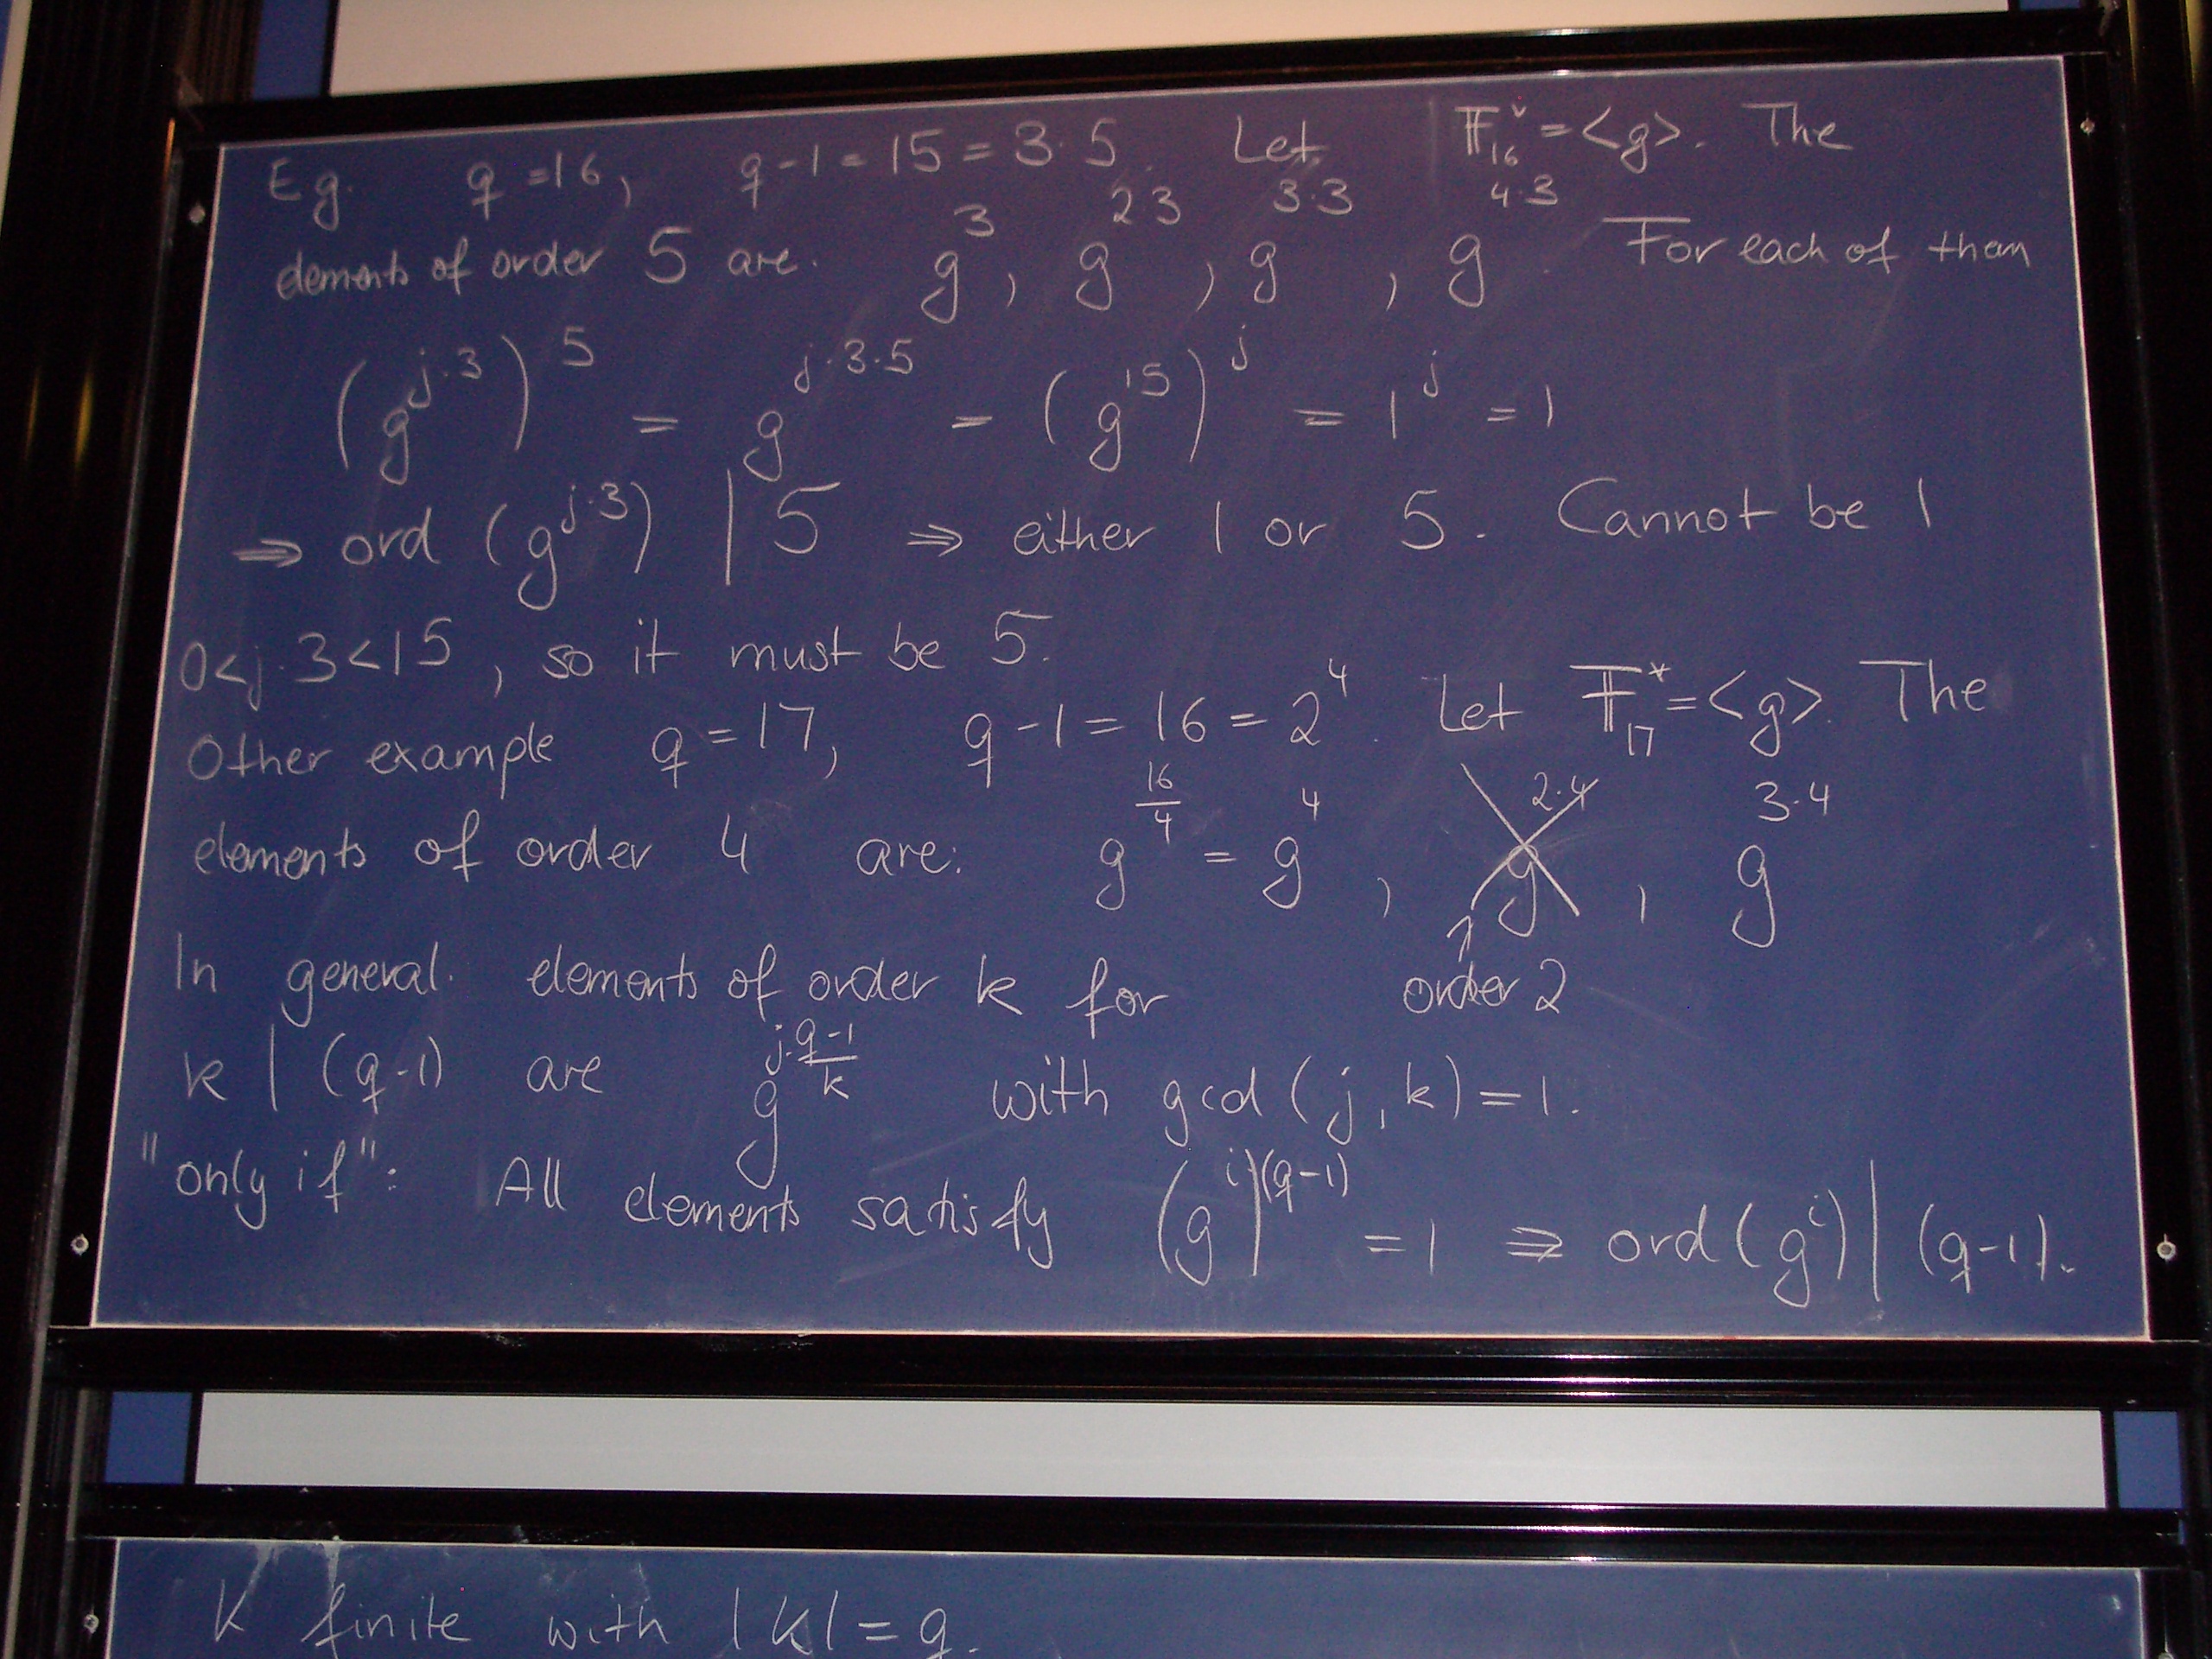 Eg. q=16, q-1=15=3·5. Let F₁₆ˣ=<g>. The
elements of order 5 are. g³, g²·³, g³·³, g⁴·³. For each of them
(g^(j·3))^5 = g^(j·3·5) = (g^15)^j = 1^j = 1
⇒ ord (g^(j·3)) | 5 ⇒ either 1 or 5. Cannot be 1
0<j·3<15, so it must be 5.
Other example q=17, q-1=16=2⁴. Let F₁₇*=<g>. The
elements of order 4 are: g^(16/4) = g⁴, g^(2·4), g^(3·4)
order 2
In general. elements of order k for
k | (q-1) are g^(j·(q-1)/k) with gcd(j,k)=1.
"only if": All elements satisfy (g^i)^(q-1) = 1 ⇒ ord(g^i) | (q-1).
K finite with |K|=q.